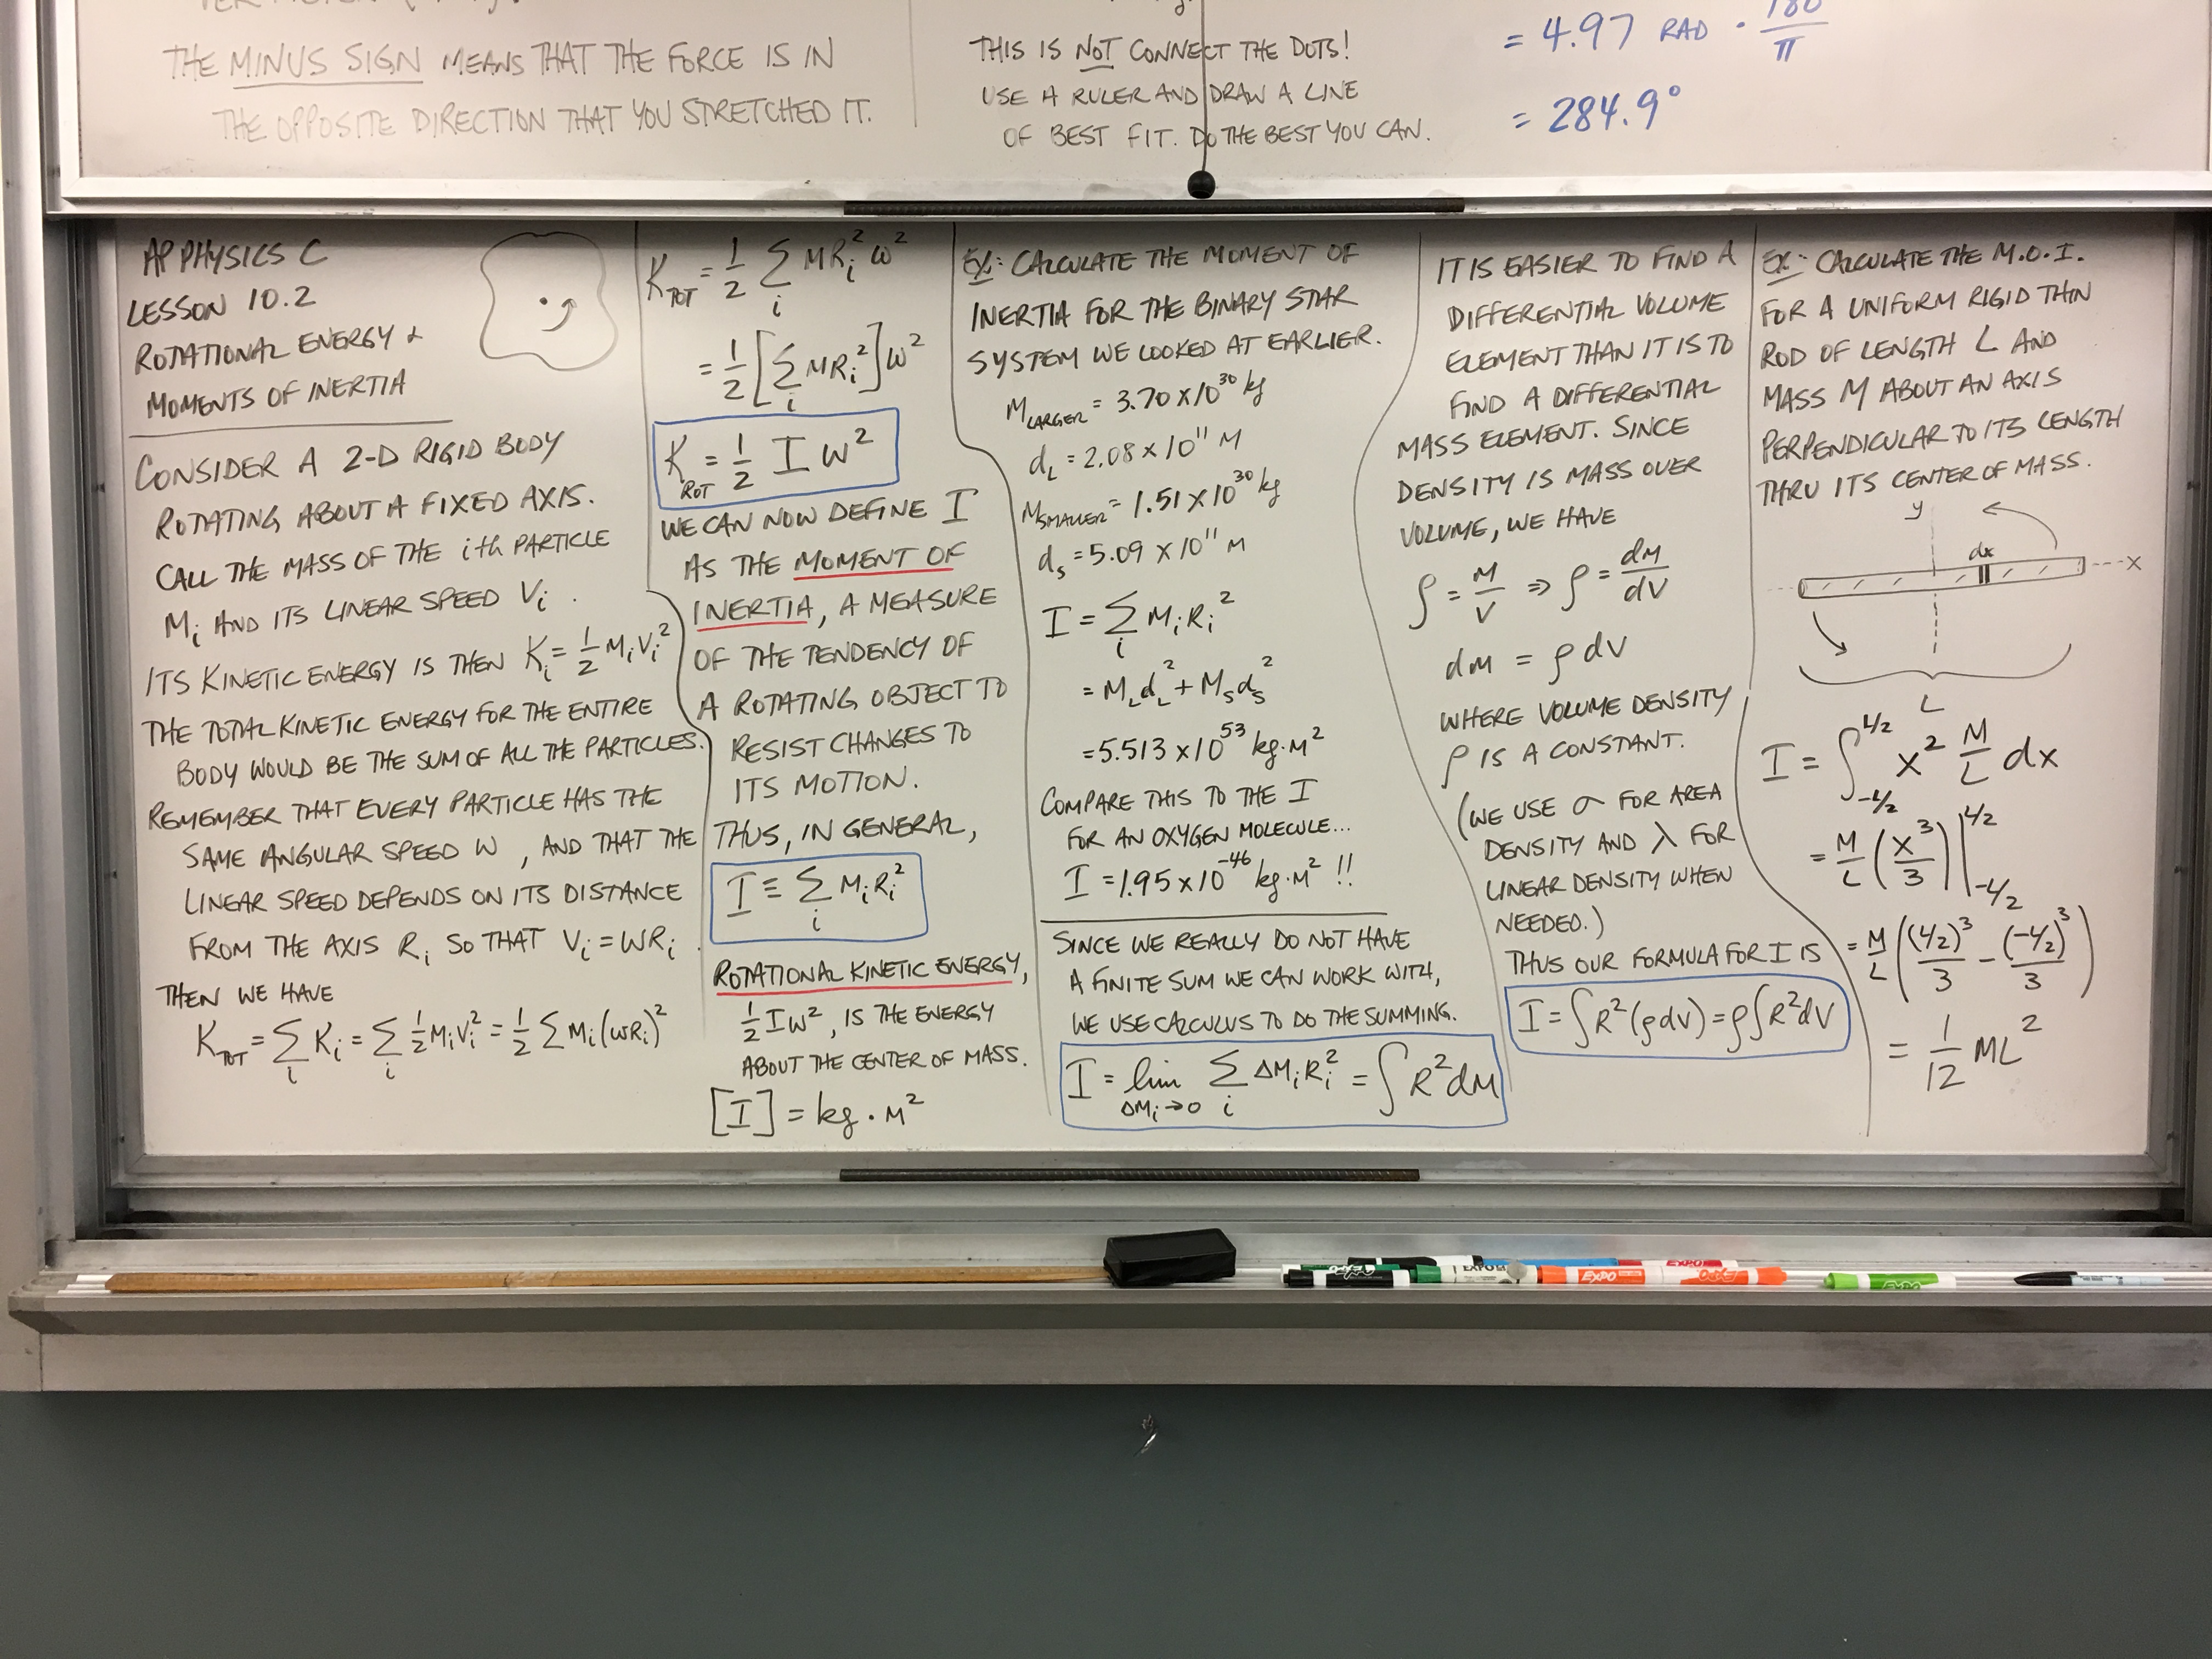 THE MINUS SIGN MEANS THAT THE FORCE IS IN
THE OPPOSITE DIRECTION THAT YOU STRETCHED IT.
THIS IS NOT CONNECT THE DOTS!
USE A RULER AND DRAW A LINE
OF BEST FIT. DO THE BEST YOU CAN.
= 4.97 RAD · 180/π
= 284.9°
AP PHYSICS C
LESSON 10.2
ROTATIONAL ENERGY &
MOMENTS OF INERTIA
CONSIDER A 2-D RIGID BODY
ROTATING ABOUT A FIXED AXIS.
CALL THE MASS OF THE ith PARTICLE
Mᵢ AND ITS LINEAR SPEED Vᵢ.
ITS KINETIC ENERGY IS THEN Kᵢ = 1/2 MᵢVᵢ²
THE TOTAL KINETIC ENERGY FOR THE ENTIRE
BODY WOULD BE THE SUM OF ALL THE PARTICLES.
REMEMBER THAT EVERY PARTICLE HAS THE
SAME ANGULAR SPEED ω, AND THAT THE
LINEAR SPEED DEPENDS ON ITS DISTANCE
FROM THE AXIS Rᵢ SO THAT Vᵢ = ωRᵢ.
THEN WE HAVE
K_TOT = Σᵢ Kᵢ = Σᵢ 1/2 MᵢVᵢ² = 1/2 Σ Mᵢ(ωRᵢ)²
K_TOT = 1/2 Σᵢ MRᵢ² ω²
= 1/2 [Σᵢ MRᵢ²] ω²
K_ROT = 1/2 I ω²
WE CAN NOW DEFINE I
AS THE MOMENT OF
INERTIA, A MEASURE
OF THE TENDENCY OF
A ROTATING OBJECT TO
RESIST CHANGES TO
ITS MOTION.
THUS, IN GENERAL,
I ≡ Σᵢ MᵢRᵢ²
ROTATIONAL KINETIC ENERGY,
1/2 Iω², IS THE ENERGY
ABOUT THE CENTER OF MASS.
[I] = kg · M²
EX: CALCULATE THE MOMENT OF
INERTIA FOR THE BINARY STAR
SYSTEM WE LOOKED AT EARLIER.
M_LARGER = 3.70 × 10³⁰ kg
d_L = 2.08 × 10¹¹ M
M_SMALLER = 1.51 × 10³⁰ kg
d_S = 5.09 × 10¹¹ M
I = Σᵢ MᵢRᵢ²
= M_L d_L² + M_S d_S²
= 5.513 × 10⁵³ kg·M²
COMPARE THIS TO THE I
FOR AN OXYGEN MOLECULE...
I = 1.95 × 10⁻⁴⁶ kg·M² !!
SINCE WE REALLY DO NOT HAVE
A FINITE SUM WE CAN WORK WITH,
WE USE CALCULUS TO DO THE SUMMING.
I = lim ΔMᵢ→0 Σᵢ ΔMᵢRᵢ² = ∫R²dM
IT IS EASIER TO FIND A
DIFFERENTIAL VOLUME
ELEMENT THAN IT IS TO
FIND A DIFFERENTIAL
MASS ELEMENT. SINCE
DENSITY IS MASS OVER
VOLUME, WE HAVE
ρ = M/V ⇒ ρ = dM/dV
dM = ρ dV
WHERE VOLUME DENSITY
ρ IS A CONSTANT.
(WE USE σ FOR AREA
DENSITY AND λ FOR
LINEAR DENSITY WHEN
NEEDED.)
THUS OUR FORMULA FOR I IS
I = ∫R²(ρdV) = ρ∫R²dV
EX: CALCULATE THE M.O.I.
FOR A UNIFORM RIGID THIN
ROD OF LENGTH L AND
MASS M ABOUT AN AXIS
PERPENDICULAR TO ITS LENGTH
THRU ITS CENTER OF MASS.
y
dx
x
L
I = ∫_{-L/2}^{L/2} x² M/L dx
= M/L (x³/3) |_{-L/2}^{L/2}
= M/L ((L/2)³/3 - (-L/2)³/3)
= 1/12 ML²
EXPO
EXPO
EXPO
EXPO
EXPO
EXPO